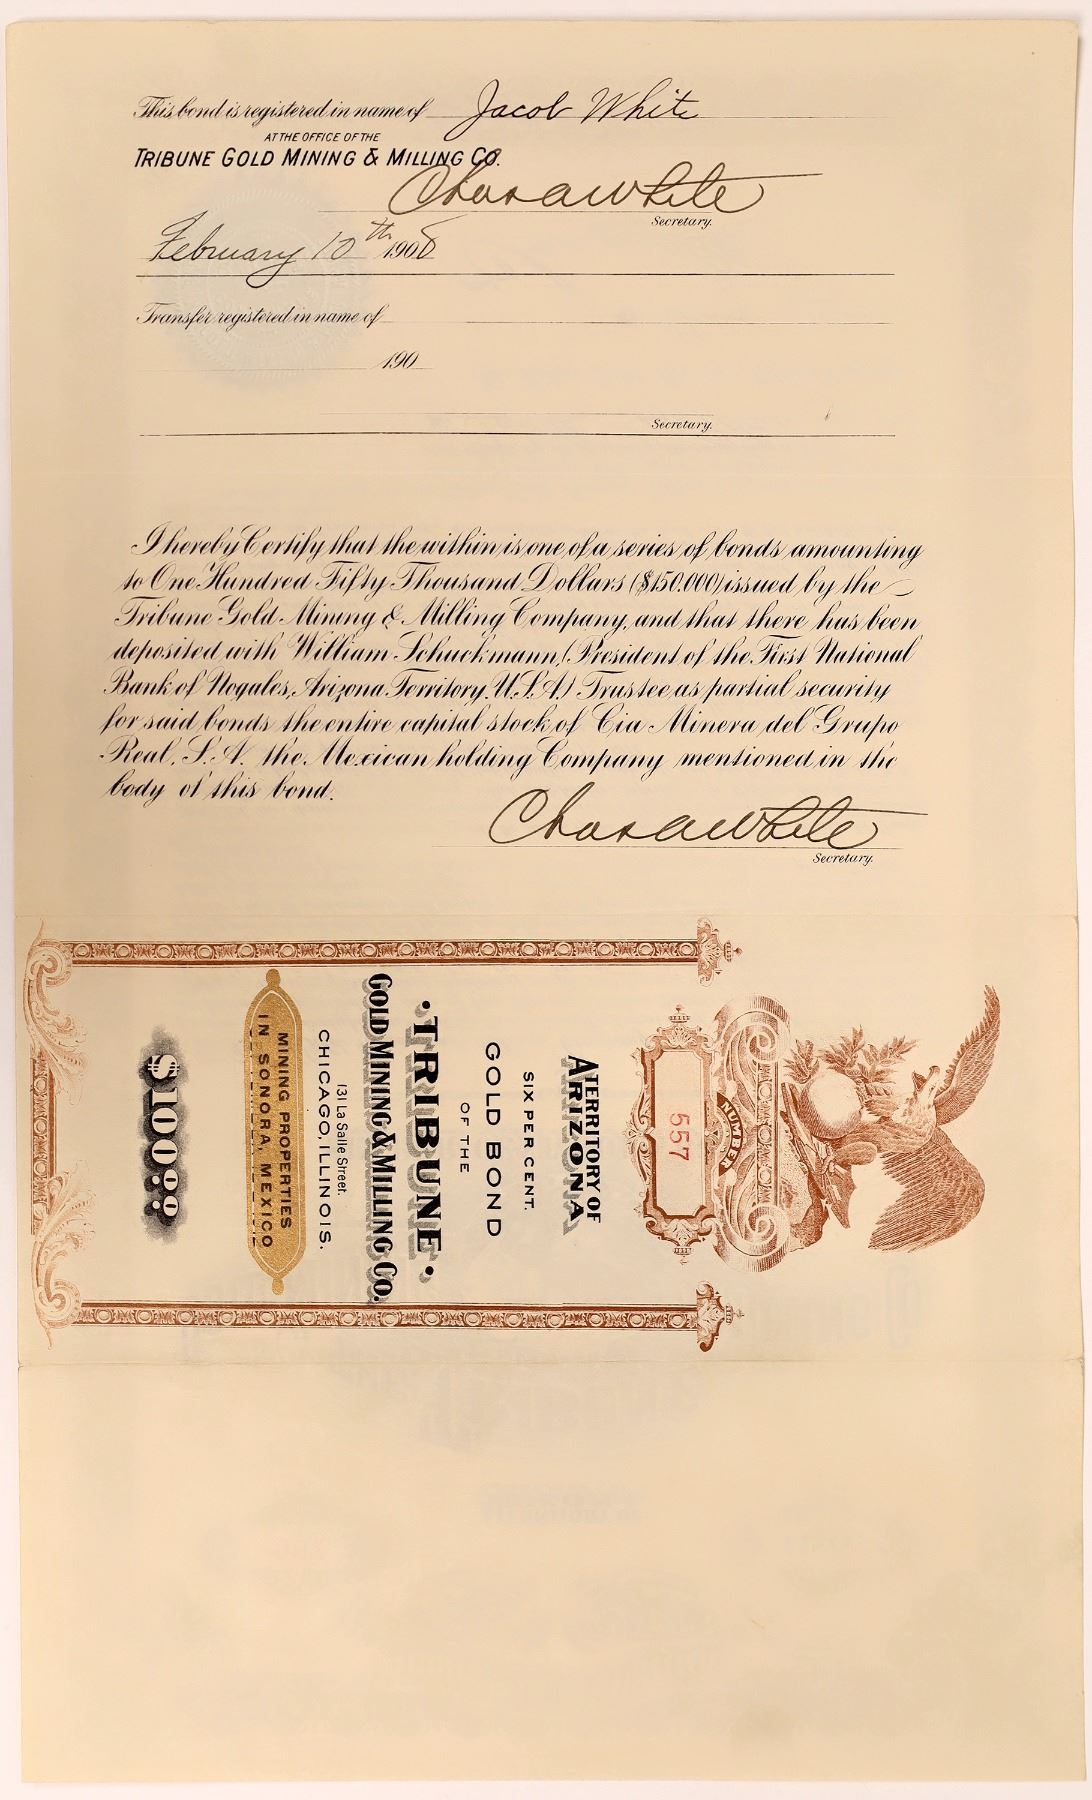 This bond is registered in name of Jacob White
AT THE OFFICE OF THE
TRIBUNE GOLD MINING & MILLING CO.
Chas a White
Secretary.
February 10th 1908
Transfer registered in name of
190
Secretary.
I hereby Certify that the within is one of a series of bonds amounting
to One Hundred Fifty Thousand Dollars ($150.000) issued by the
Tribune Gold Mining & Milling Company, and that there has been
deposited with William Schuckmann, (President of the First National
Bank of Nogales, Arizona Territory, U.S.A.) Trustee as partial security
for said bonds the entire capital stock of Cia Minera del Grupo
Real, S.A. the Mexican holding Company mentioned in the
body of this bond.
Chas a White
Secretary.
NUMBER
557
TERRITORY OF
ARIZONA
SIX PER CENT.
GOLD BOND
OF THE
·TRIBUNE·
GOLD MINING & MILLING CO.
131 La Salle Street.
CHICAGO, ILLINOIS.
MINING PROPERTIES
IN SONORA, MEXICO
$100.00